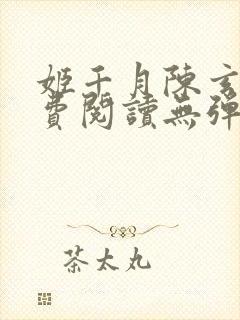 姬千月陳玄
費閱讀無彈
茶太丸